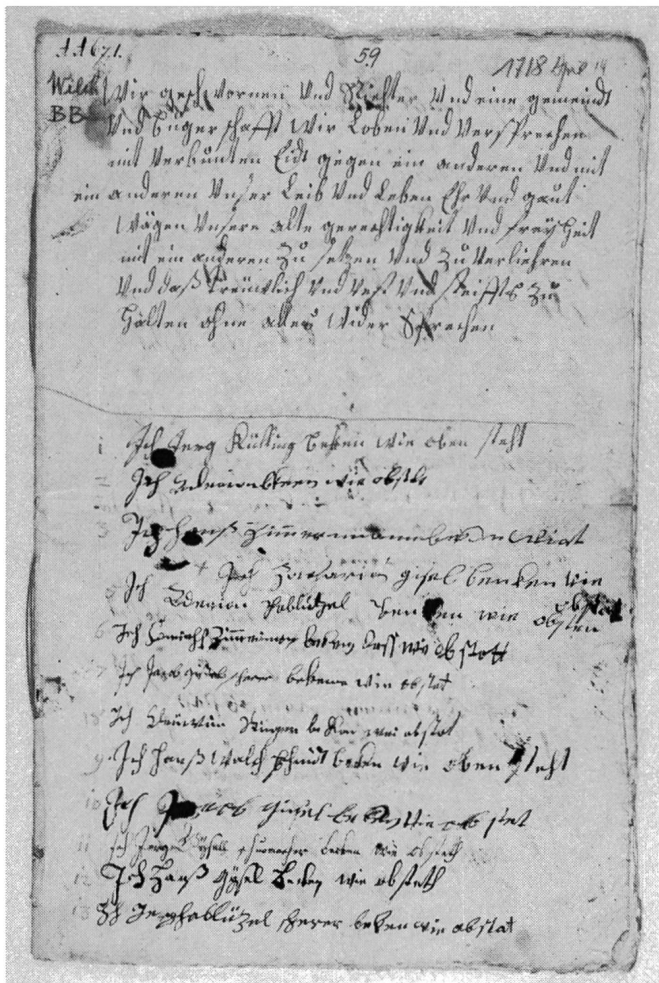 AA 671.
59
1718 Apr 14
Wilch
BB
Wir geschwornen Und Richter Und eine gemeindt
Und Bugerschafft Wir Loben Und Versprechen
mit Verbunten Eidt gegen ein anderen Und mit
ein anderen Unser Leib Und Leben Ehr Und gaut
Wägen Unsere alte gerechtigkeit Und freÿheit
mit ein anderen Zu setzen Und Zu Verliehren
Und daß treüwlich Und Vest Und steiff Zu
Halten ohne alles Wider Sprechen
1 Ich Jerg Külling beken wie oben steht
2 Ich wie obsteht
3 Ich Hanß Zimmerman
Ich Zacharias gisel bencken wie obstat
5 Ich Hablützel bencken wie obsten
6 Ich Zimerman beken wie ob stett
7 Ich Jacob scherer bekene wie obstat
8 Ich Ringen be ken wie obstat
9 Ich Hanß Walch schmidt beken wie oben steht
10 Ich Jacob gisel beken wie ob stet
11 Ich Jerg schumacher beken wie obsteth
12 Ich Hanß Gÿsel Beken wie obsteth
13 Ich Jerg hablützel scherer beken wie obstat